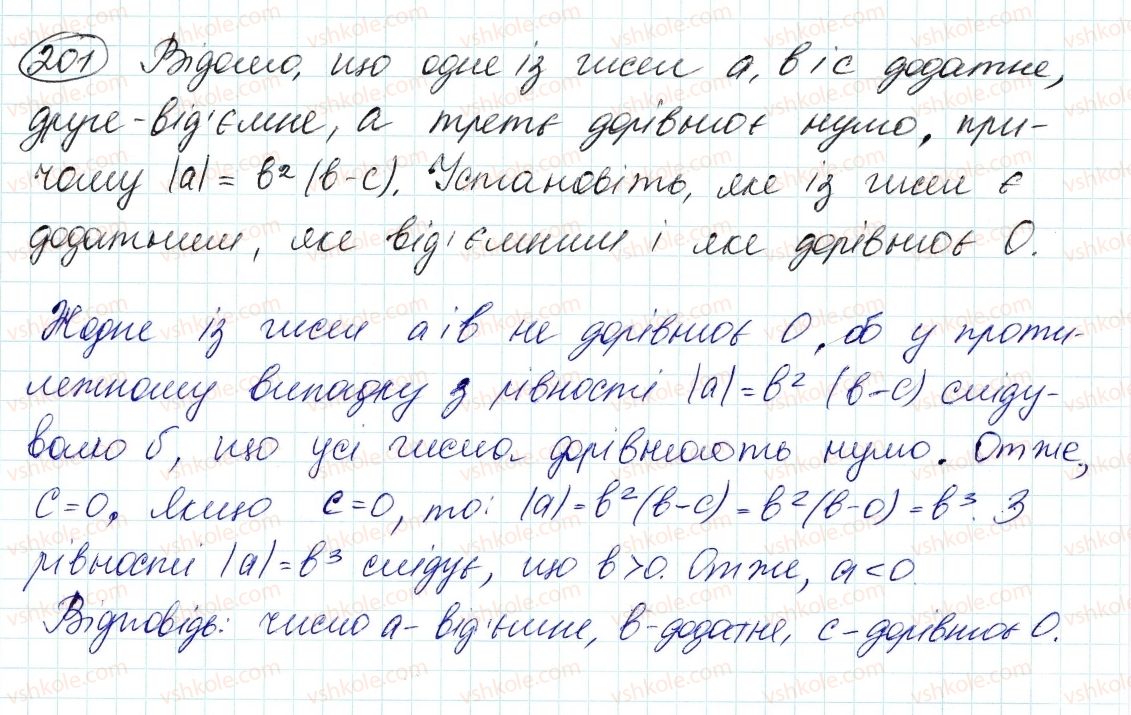 201 Відомо, що одне із чисел a, b і c додатне,
друге - від'ємне, а третє дорівнює нулю, при-
чому |a| = b² (b-c). Установіть, яке із чисел є
додатним, яке від'ємним і яке дорівнює 0.
Жодне із чисел a і b не дорівнює 0, бо у проти-
лежному випадку з рівності |a| = b² (b-c) сліду-
вало б, що усі числа дорівнюють нулю. Отже,
c=0. Якщо c=0, то: |a| = b²(b-c) = b²(b-0) = b³. З
рівності |a| = b³ слідує, що b>0. Отже, a<0.
Відповідь: число a - від'ємне, b - додатне, c - дорівнює 0.